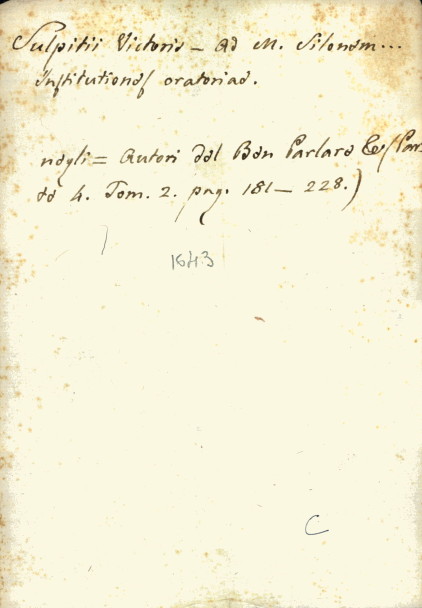 Sulpitii Victoris – ad M. Silonem...
Institutiones oratoriae.
negli = Autori del Ben Parlare &c (Par-
te 4. Tom. 2. pag. 181 – 228.)
1643
C